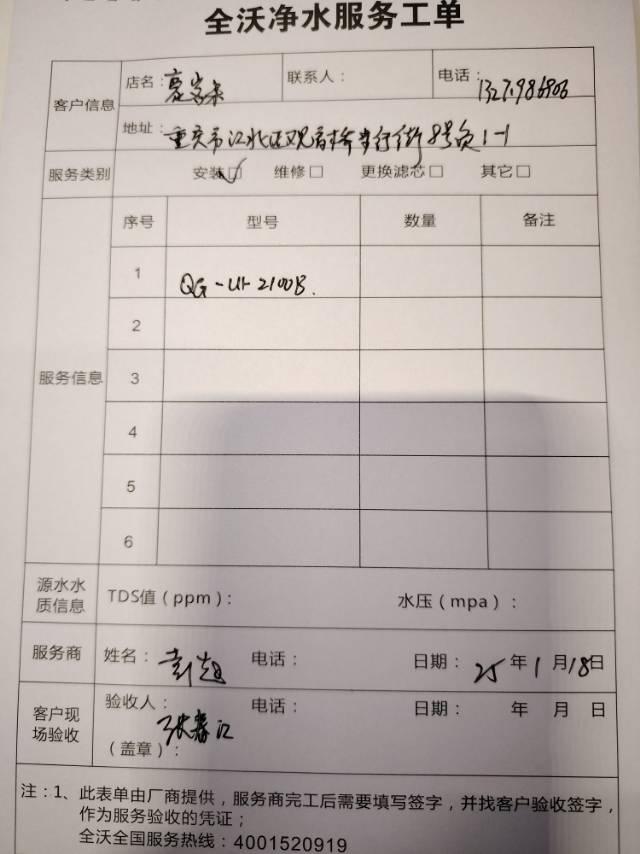 全沃净水服务工单
客户信息 店名： 联系人： 电话：
地址：重庆市江北区观音桥步行街8号负1-1
服务类别 安装☑ 维修□ 更换滤芯□ 其它□
服务信息 序号 型号 数量 备注
1 QG-U1-2100B.
2
3
4
5
6
源水水质信息 TDS值（ppm）： 水压（mpa）：
服务商 姓名：彭超 电话： 日期：25年1月18日
客户现场验收 验收人：张春江 电话： 日期： 年 月 日
（盖章）：
注：1、此表单由厂商提供，服务商完工后需要填写签字，并找客户验收签字，
作为服务验收的凭证；
全沃全国服务热线：4001520919